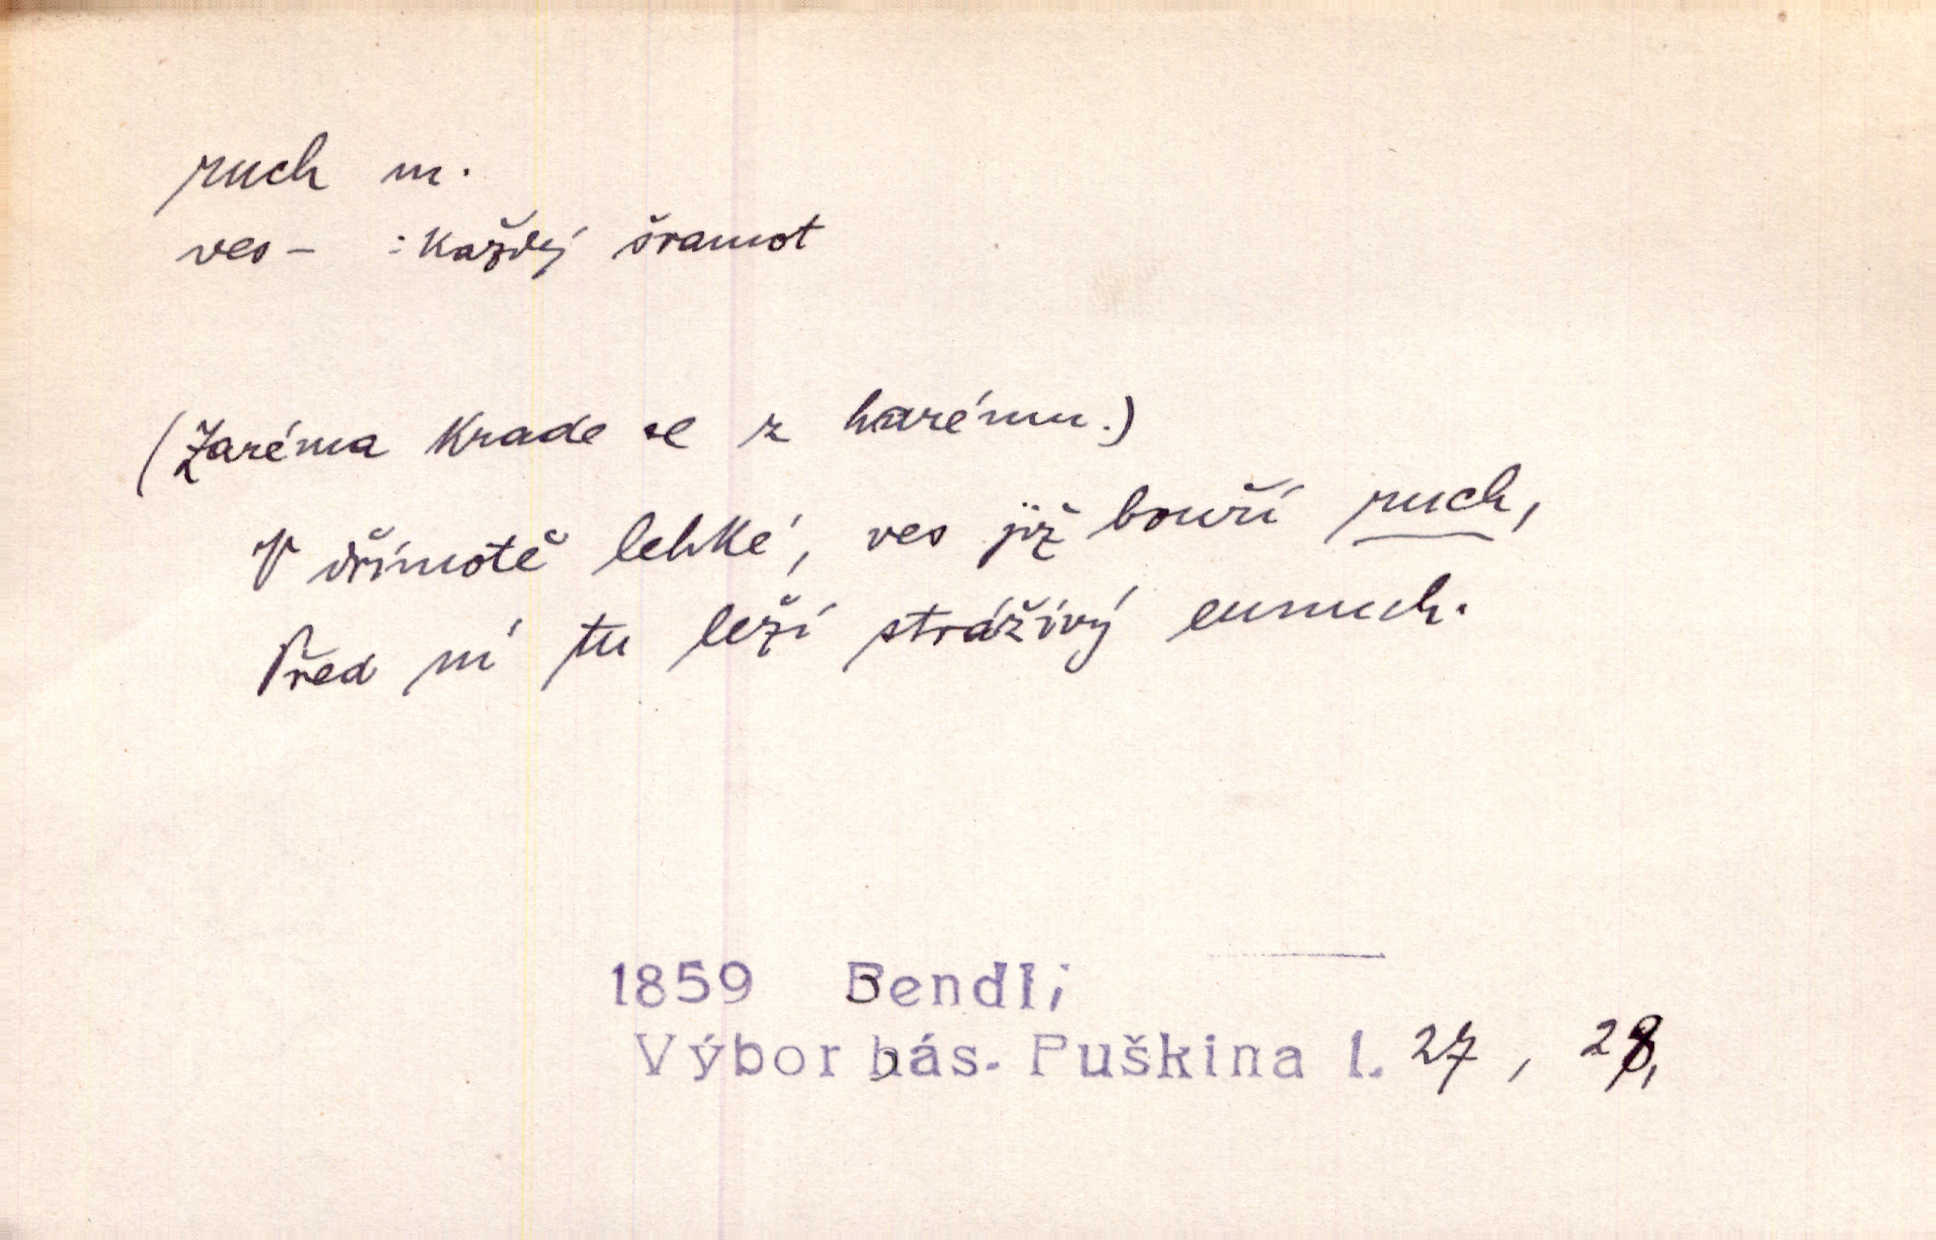 ruch m.
ves - : každý šramot
(Zaréma krade se z harému.)
V dřímotě lehké, ves již bouří ruch,
Před ní tu leží stráživý eunuch.
1859 Bendl
Výbor bás. Puškina I. 27, 28,